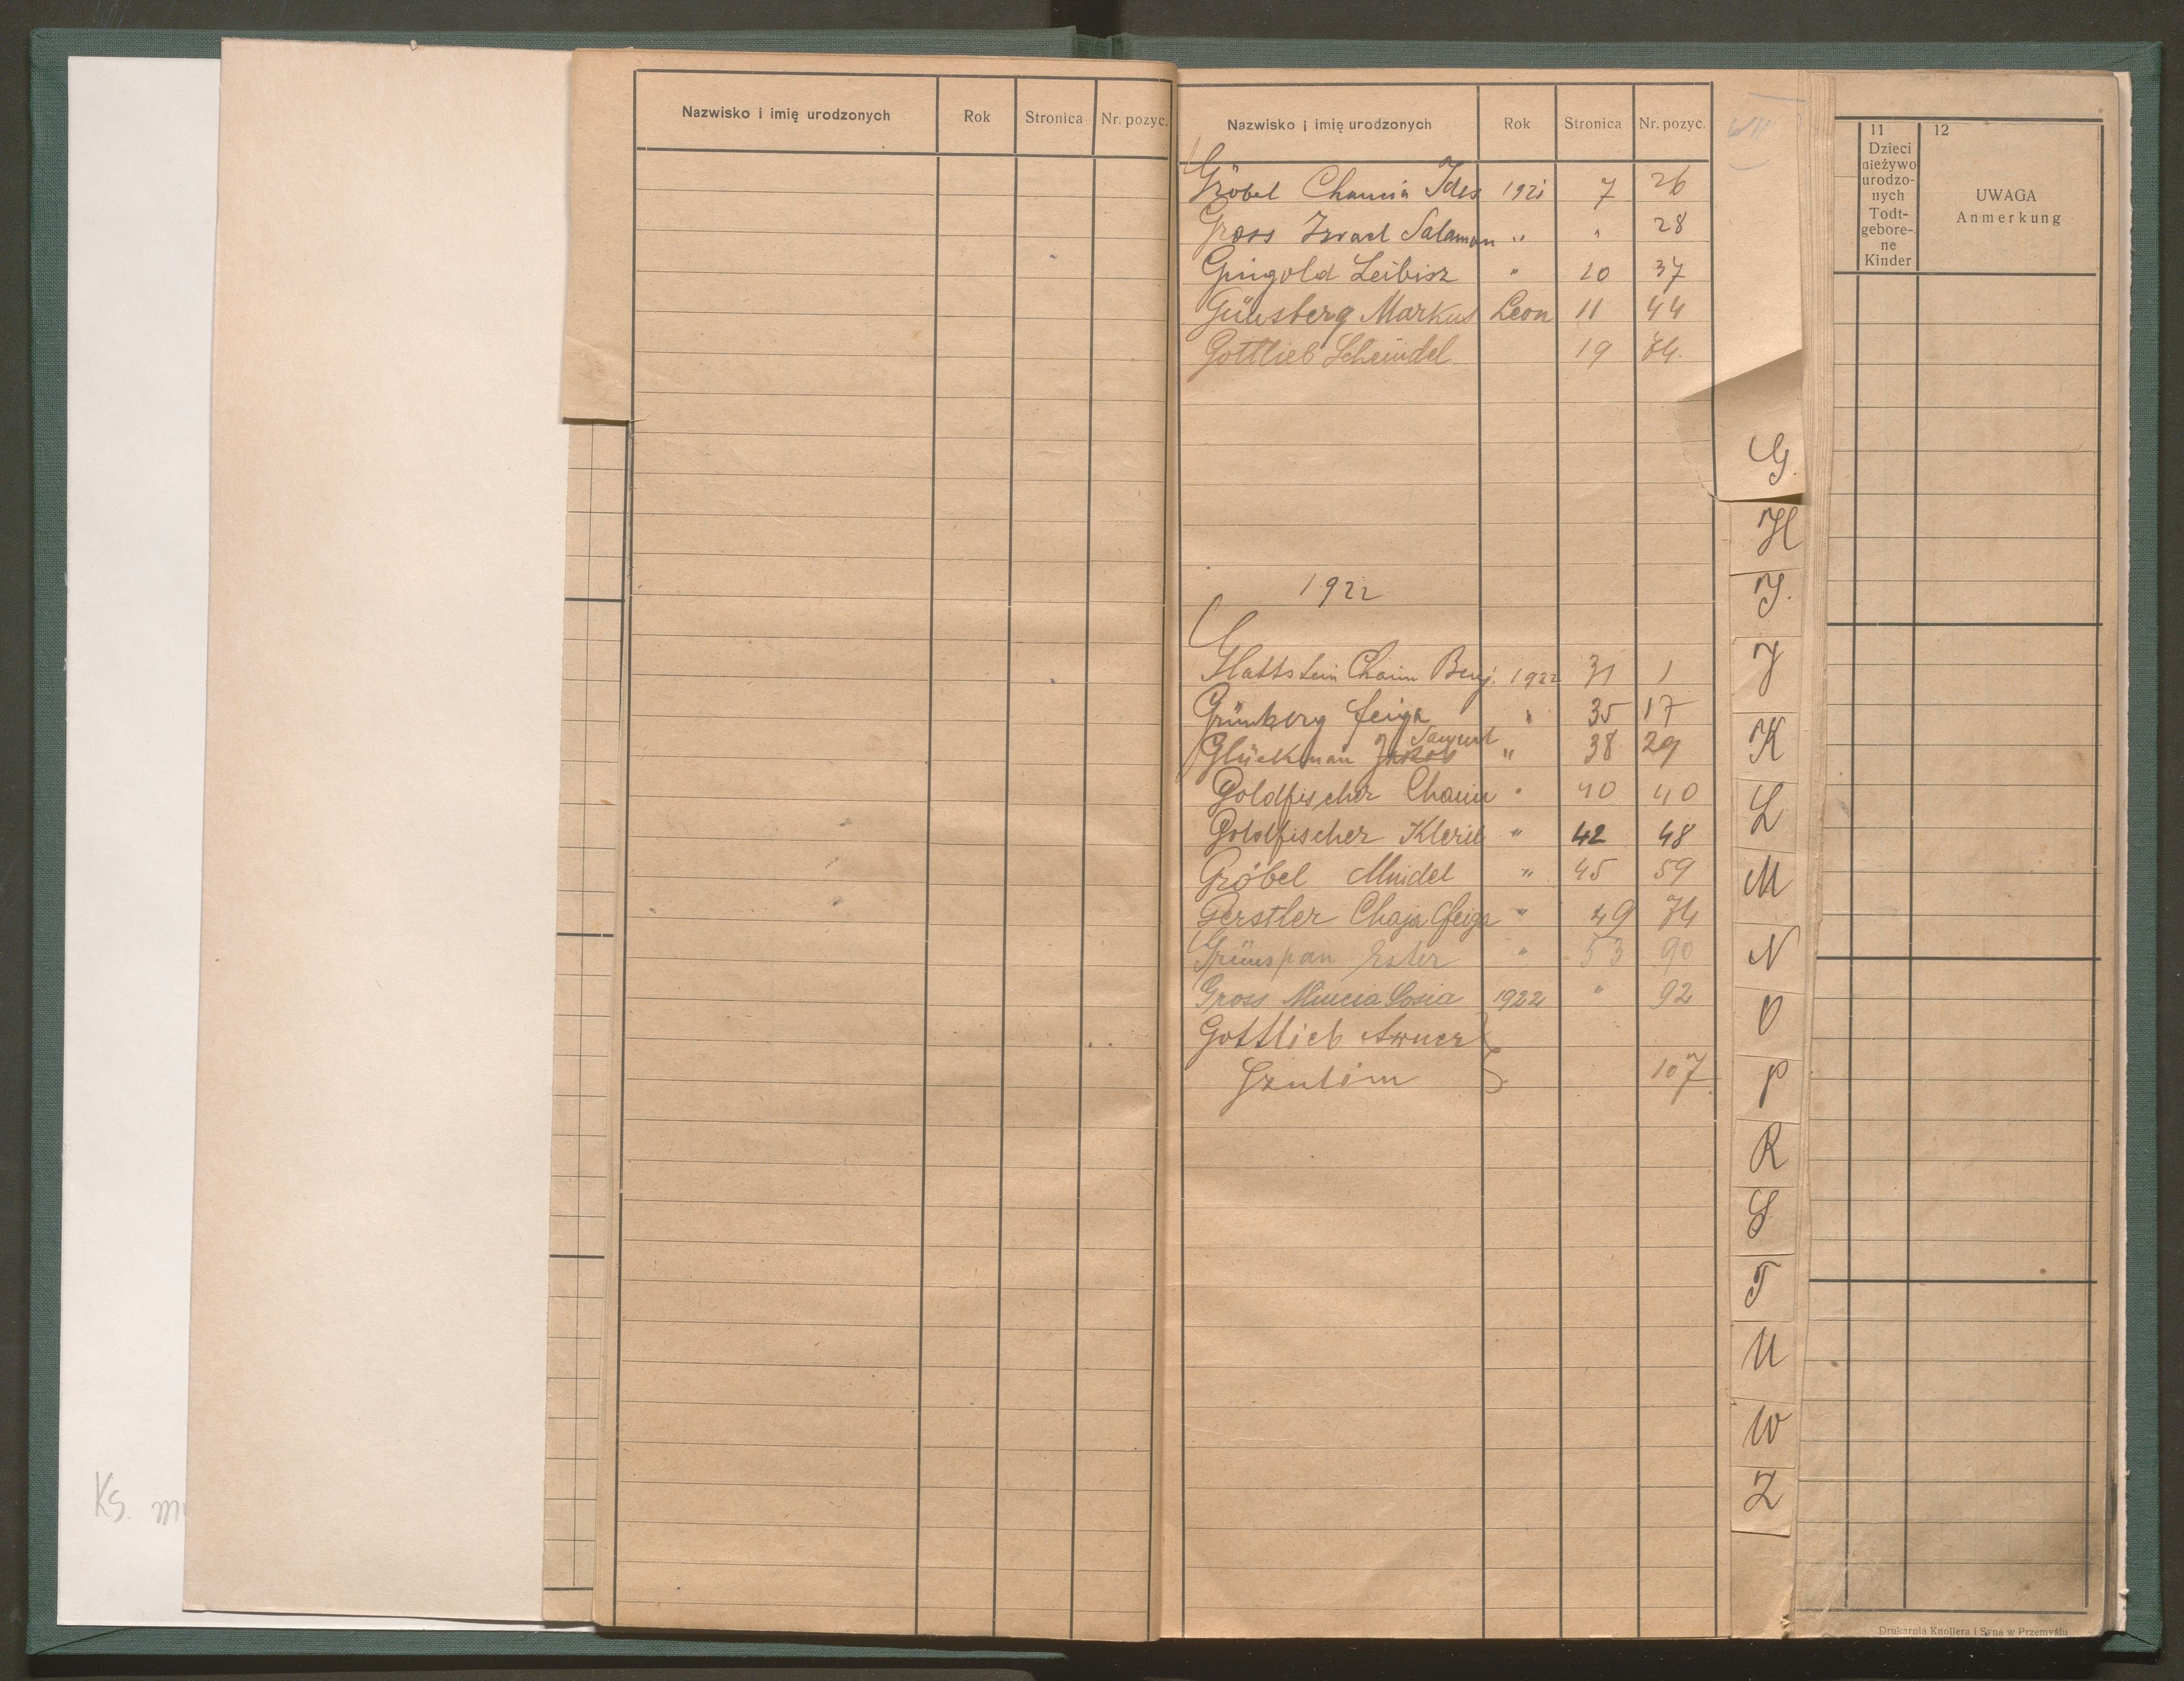 Nazwisko i imię urodzonych Rok Stronica Nr. pozyc.
Nazwisko i imię urodzonych Rok Stronica Nr. pozyc.
Gröbel Chancia Ides 1921 7 26
Gross Izrael Salamon " " 28
Gingold Leibisz " 10 37
Günsberg Markus Leon 11 44
Gottlieb Scheindel 19 74.
1922
Glattstein Chaim Benj. 1922 31 1
Grünberg Feiga " 35 17
Samuel
Glückman Jakob " 38 29
Goldfischer Chaim " 40 40
Goldfischer " 42 48
Gröbel Mindel " 45 59
Gerstler Chaja Feiga " 49 74
Grünspan Ester " 53 90
Gross 1922 " 92
Gottlieb
107
G.
H
I.
J
K
L
M
N
O
P
R
S
T
U
W
Z
11
Dzieci
nieżywo
urodzo-
nych
Todt-
gebore-
ne
Kinder
12
UWAGA
Anmerkung
Ks.
Drukarnia Knollera i Syna w Przemyślu